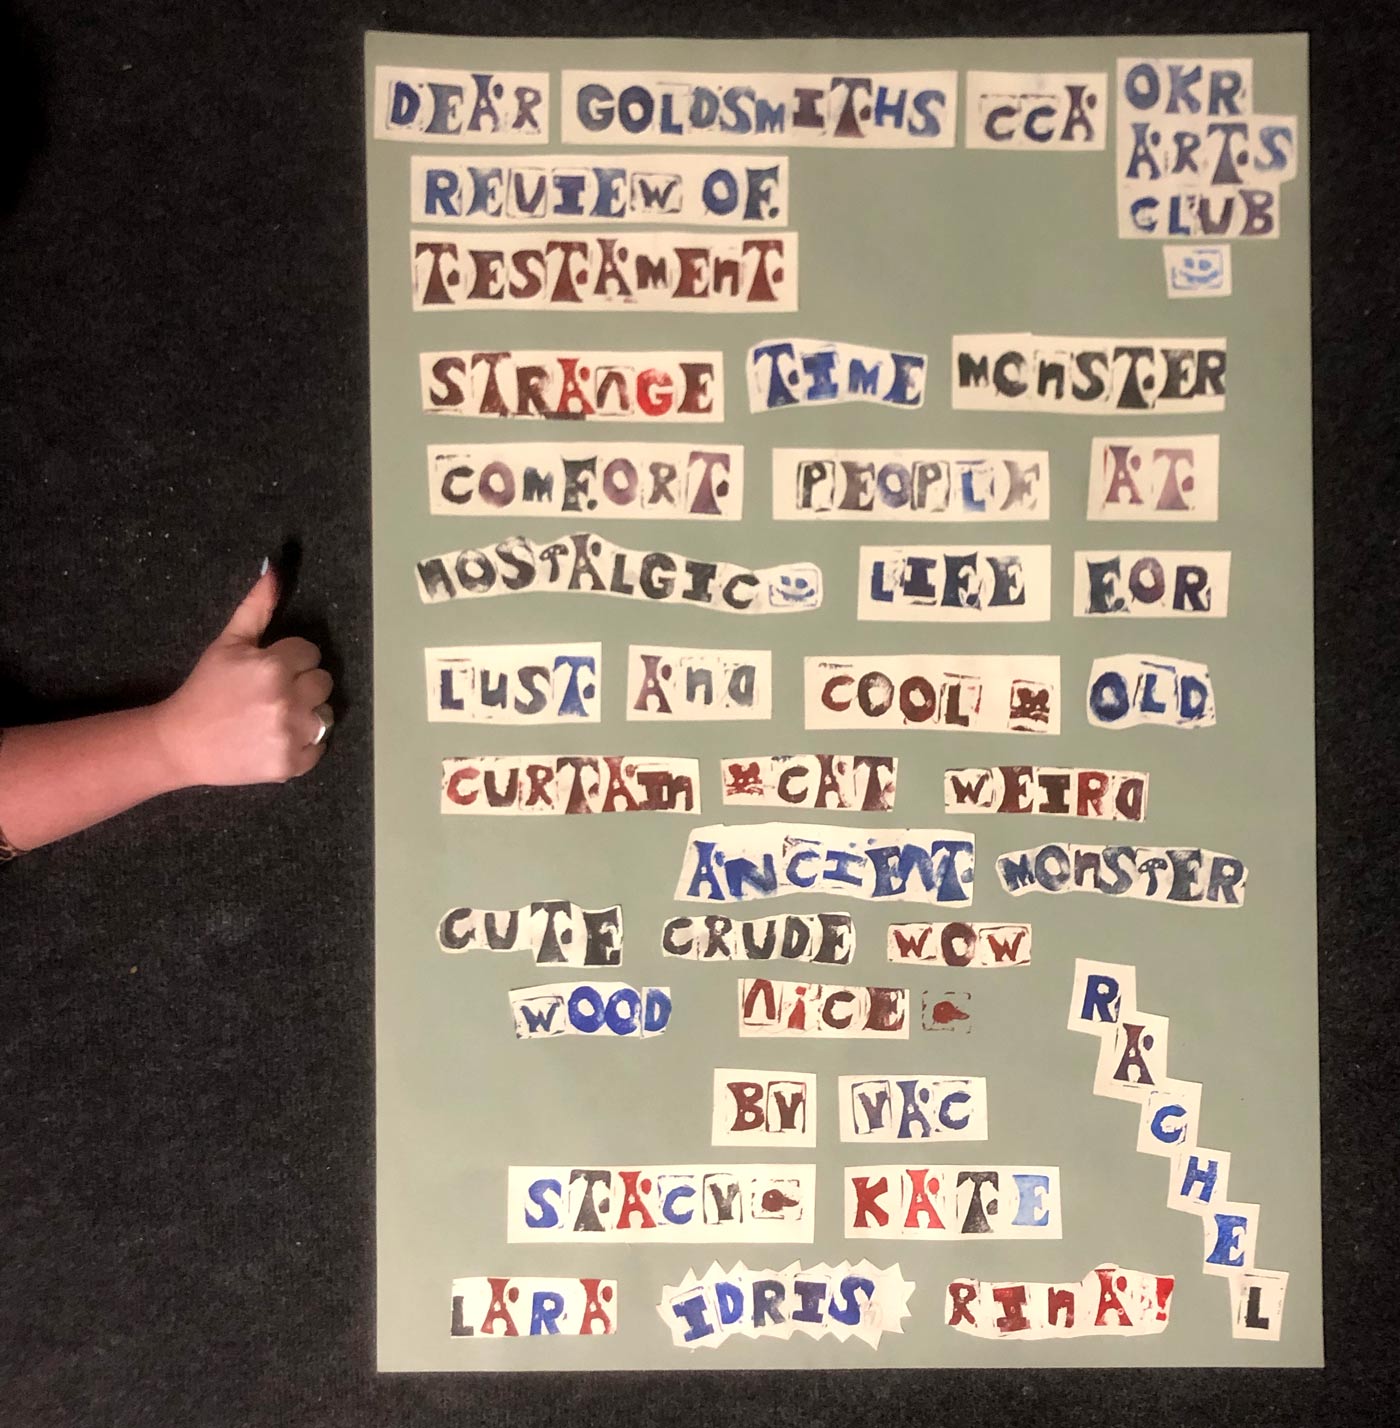 DEAR GOLDSMITHS CCA
OKR
ARTS
CLUB
REVIEW OF
TESTAMENT
STRANGE TIME MONSTER
COMFORT PEOPLE AT
NOSTALGIC LIFE FOR
LUST And COOL OLD
CURTAIN CAT WEIRd
ANCIENT MONSTER
CUTE CRUDE WOW
WOOD NiCE
BY YAC
STACY KATE
LARA IDRIS RINA!
RACHEL